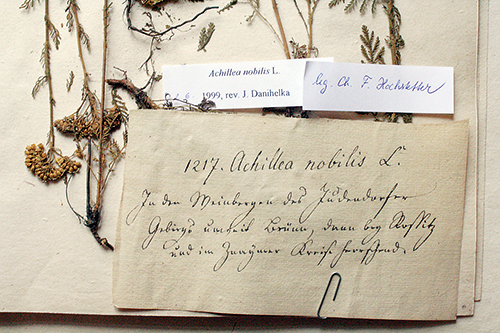 Achillea nobilis L.
1999, rev. J. Danihelka
leg. Ch. F. Hochstetter
1217. Achillea nobilis L.
In den Weinbergen des Judendorfer
Gebirgs unweit Brünn, dann bey Rossitz
und im Znaymer Kreise herrschend.